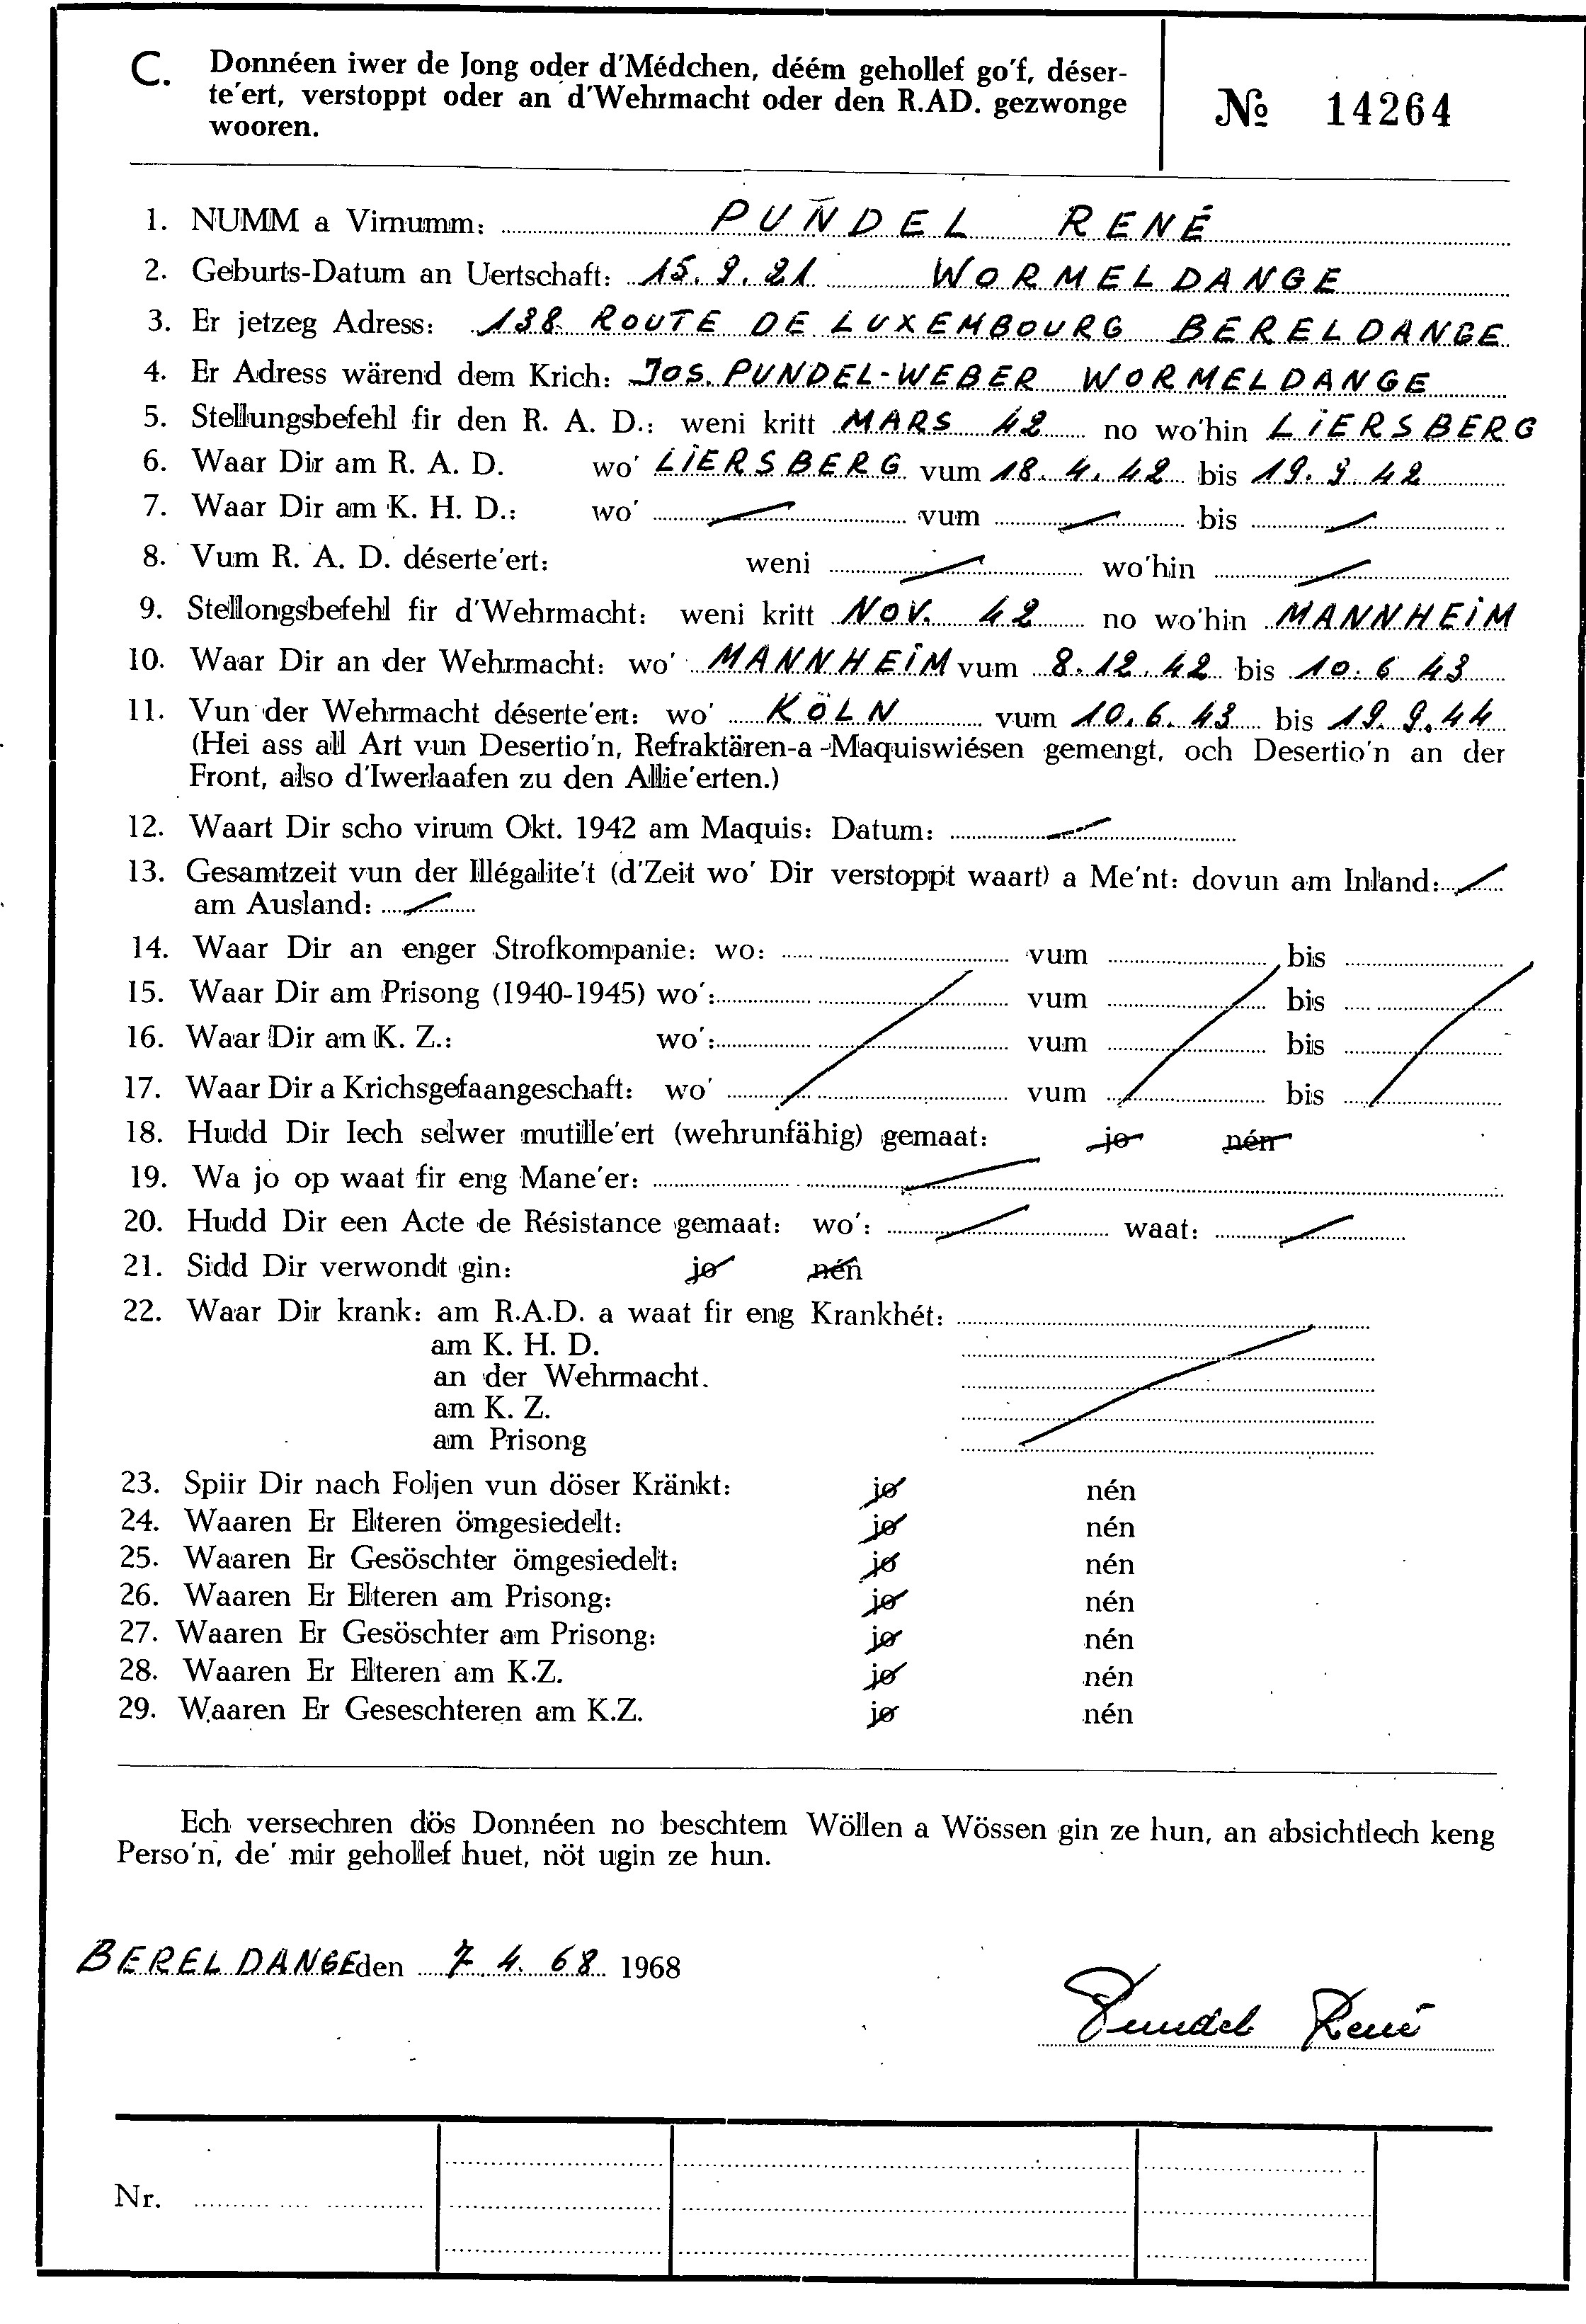 C. Donnéen iwer de Jong oder d'Médchen, déém gehollef go'f, déser-
te'ert, verstoppt oder an d'Wehrmacht oder den R.AD. gezwonge
wooren.
№ 14264
1. NUMM a Virnumm: PUNDEL RENÉ
2. Geburts-Datum an Uertschaft: 15. 9. 21. WORMELDANGE
3. Er jetzeg Adress: 138 ROUTE DE LUXEMBOURG BERELDANGE
4. Er Adress wärend dem Krich: JOS. PUNDEL-WEBER WORMELDANGE
5. Stellungsbefehl fir den R. A. D.: weni kritt MARS 42 no wo'hin LIERSBERG
6. Waar Dir am R. A. D. wo' LIERSBERG vum 18. 4. 42 bis 19. 9. 42
7. Waar Dir am K. H. D.: wo' vum bis
8. Vum R. A. D. déserte'ert: weni wo'hin
9. Stellongsbefehl fir d'Wehrmacht: weni kritt NOV. 42 no wo'hin MANNHEIM
10. Waar Dir an der Wehrmacht: wo' MANNHEIM vum 8. 12. 42 bis 10. 6. 43
11. Vun der Wehrmacht déserte'ert: wo' KÖLN vum 10. 6. 43 bis 19. 9. 44
(Hei ass all Art vun Desertio'n, Refraktären-a-Maquiswiésen gemengt, och Desertio'n an der
Front, also d'Iwerlaafen zu den Allie'erten.)
12. Waart Dir scho virum Okt. 1942 am Maquis: Datum:
13. Gesamtzeit vun der Illégalite't (d'Zeit wo' Dir verstoppt waart) a Me'nt: dovun am Inland:
am Ausland:
14. Waar Dir an enger Strofkompanie: wo: vum bis
15. Waar Dir am Prisong (1940-1945) wo': vum bis
16. Waar Dir am K. Z.: wo': vum bis
17. Waar Dir a Krichsgefaangeschaft: wo' vum bis
18. Hudd Dir Iech selwer mutille'ert (wehrunfähig) gemaat: jo nén
19. Wa jo op waat fir eng Mane'er:
20. Hudd Dir een Acte de Résistance gemaat: wo': waat:
21. Sidd Dir verwondt gin: jo nén
22. Waar Dir krank: am R.A.D. a waat fir eng Krankhét:
am K. H. D.
an der Wehrmacht.
am K. Z.
am Prisong
23. Spiir Dir nach Foljen vun döser Kränkt: jo nén
24. Waaren Er Elteren ömgesiedelt: jo nén
25. Waaren Er Gesöschter ömgesiedelt: jo nén
26. Waaren Er Elteren am Prisong: jo nén
27. Waaren Er Gesöschter am Prisong: jo nén
28. Waaren Er Elteren am K.Z. jo nén
29. Waaren Er Geseschteren am K.Z. jo nén
Ech versechren dös Donnéen no beschtem Wöllen a Wössen gin ze hun, an absichtlech keng
Perso'n, de' mir gehollef huet, nöt ugin ze hun.
BERELDANGE den 7. 4. 68 1968
Pundel René
Nr.